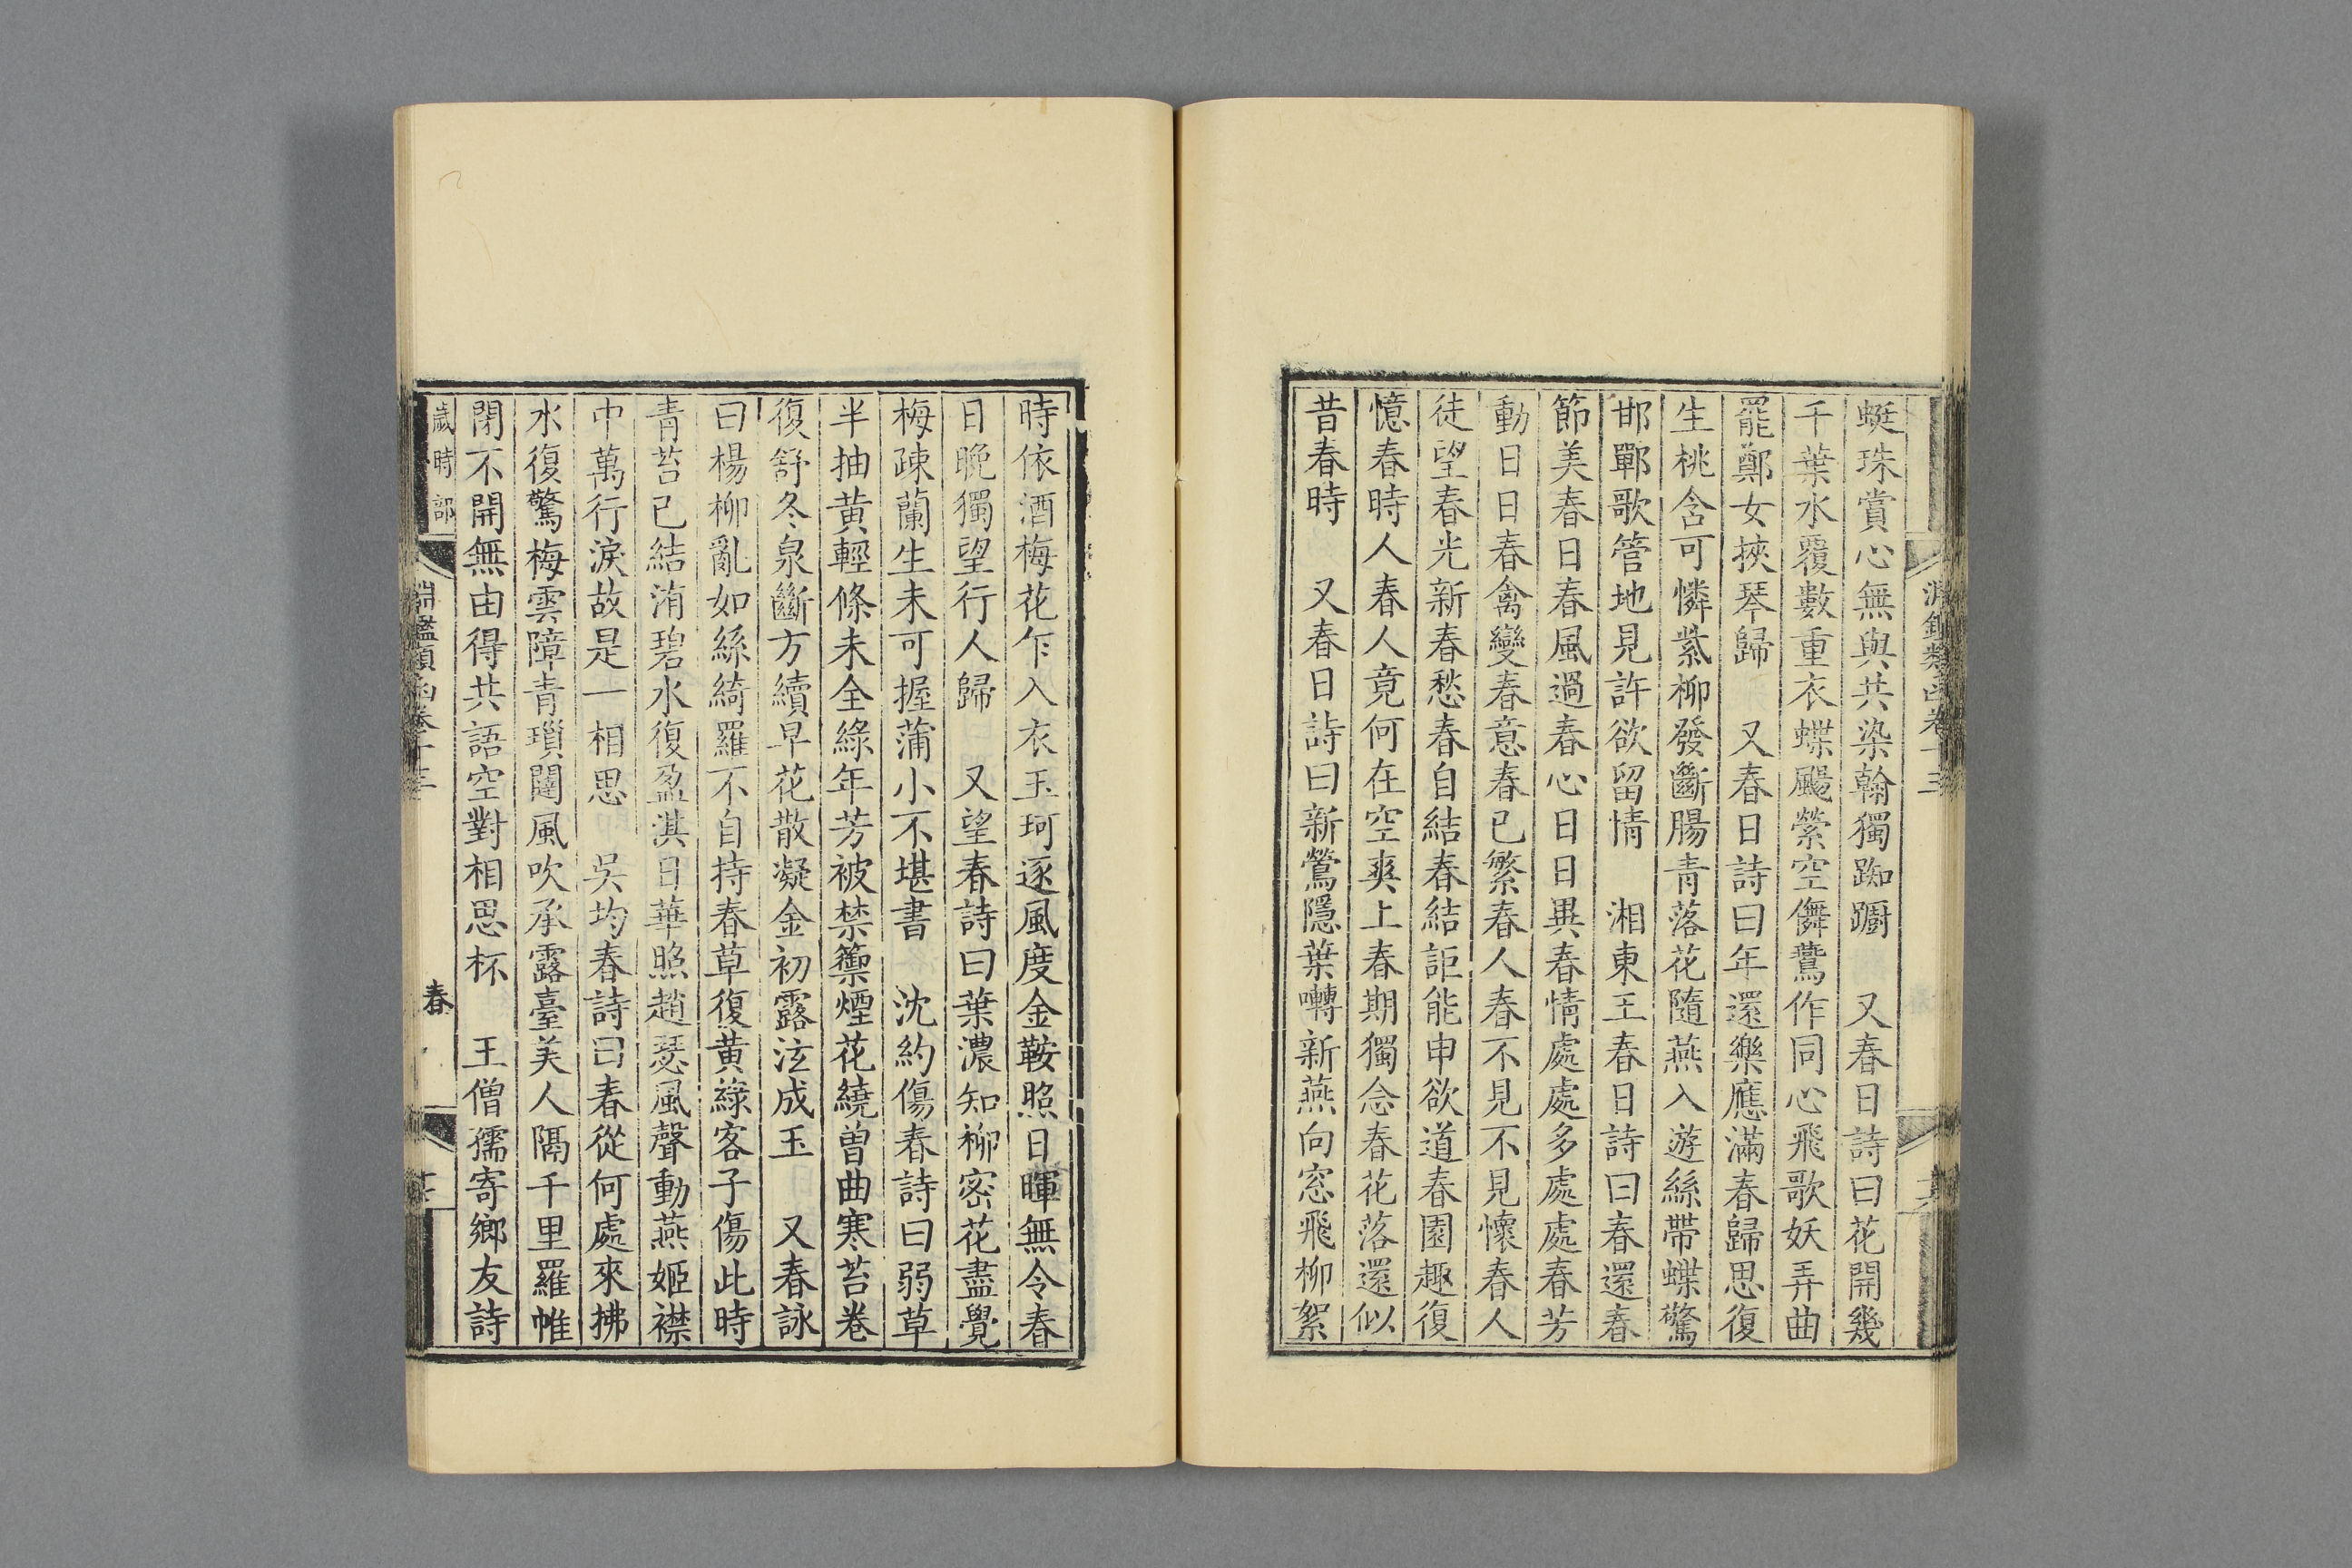 蜓珠賞心無與共染翰獨踟躕　又春日詩曰花開幾
千葉水覆數重衣蝶颺縈空儛鶯作同心飛歌妖弄曲
罷鄭女挾琴歸　又春日詩曰年還樂應滿春歸思復
生桃含可憐紫柳發斷腸青落花隨燕入遊絲帶蝶驚
邯鄲歌管地見許欲留情　湘東王春日詩曰春還春
節美春日春風過春心日日異春情處處多處處春芳
動日日春禽變春意春已繁春人春不見不見懷春人
徒望春光新春愁春自結春結詎能申欲道春園趣復
憶春時人春人竟何在空爽上春期獨念春花落還似
昔春時　又春日詩曰新鶯隱葉囀新燕向窓飛柳絮
時依酒梅花乍入衣玉珂逐風度金鞍照日暉無令春
日晚獨望行人歸　又望春詩曰葉濃知柳密花盡覺
梅疎蘭生未可握蒲小不堪書　沈約傷春詩曰弱草
半抽黃輕條未全綠年芳被禁籞煙花繞曾曲寒苔卷
復舒冬泉斷方續早花散凝金初露泫成玉　又春詠
曰楊柳亂如絲綺羅不自持春草復黃綠客子傷此時
青苔已結洧碧水復盈淇日華照趙瑟風聲動燕姬襟
中萬行淚故是一相思　吳均春詩曰春從何處來拂
水復驚梅雲障青瑣闥風吹承露臺美人隔千里羅帷
閉不開無由得共語空對相思杯　王僧孺寄鄉友詩
歲時部
淵鑑類函卷十三
春